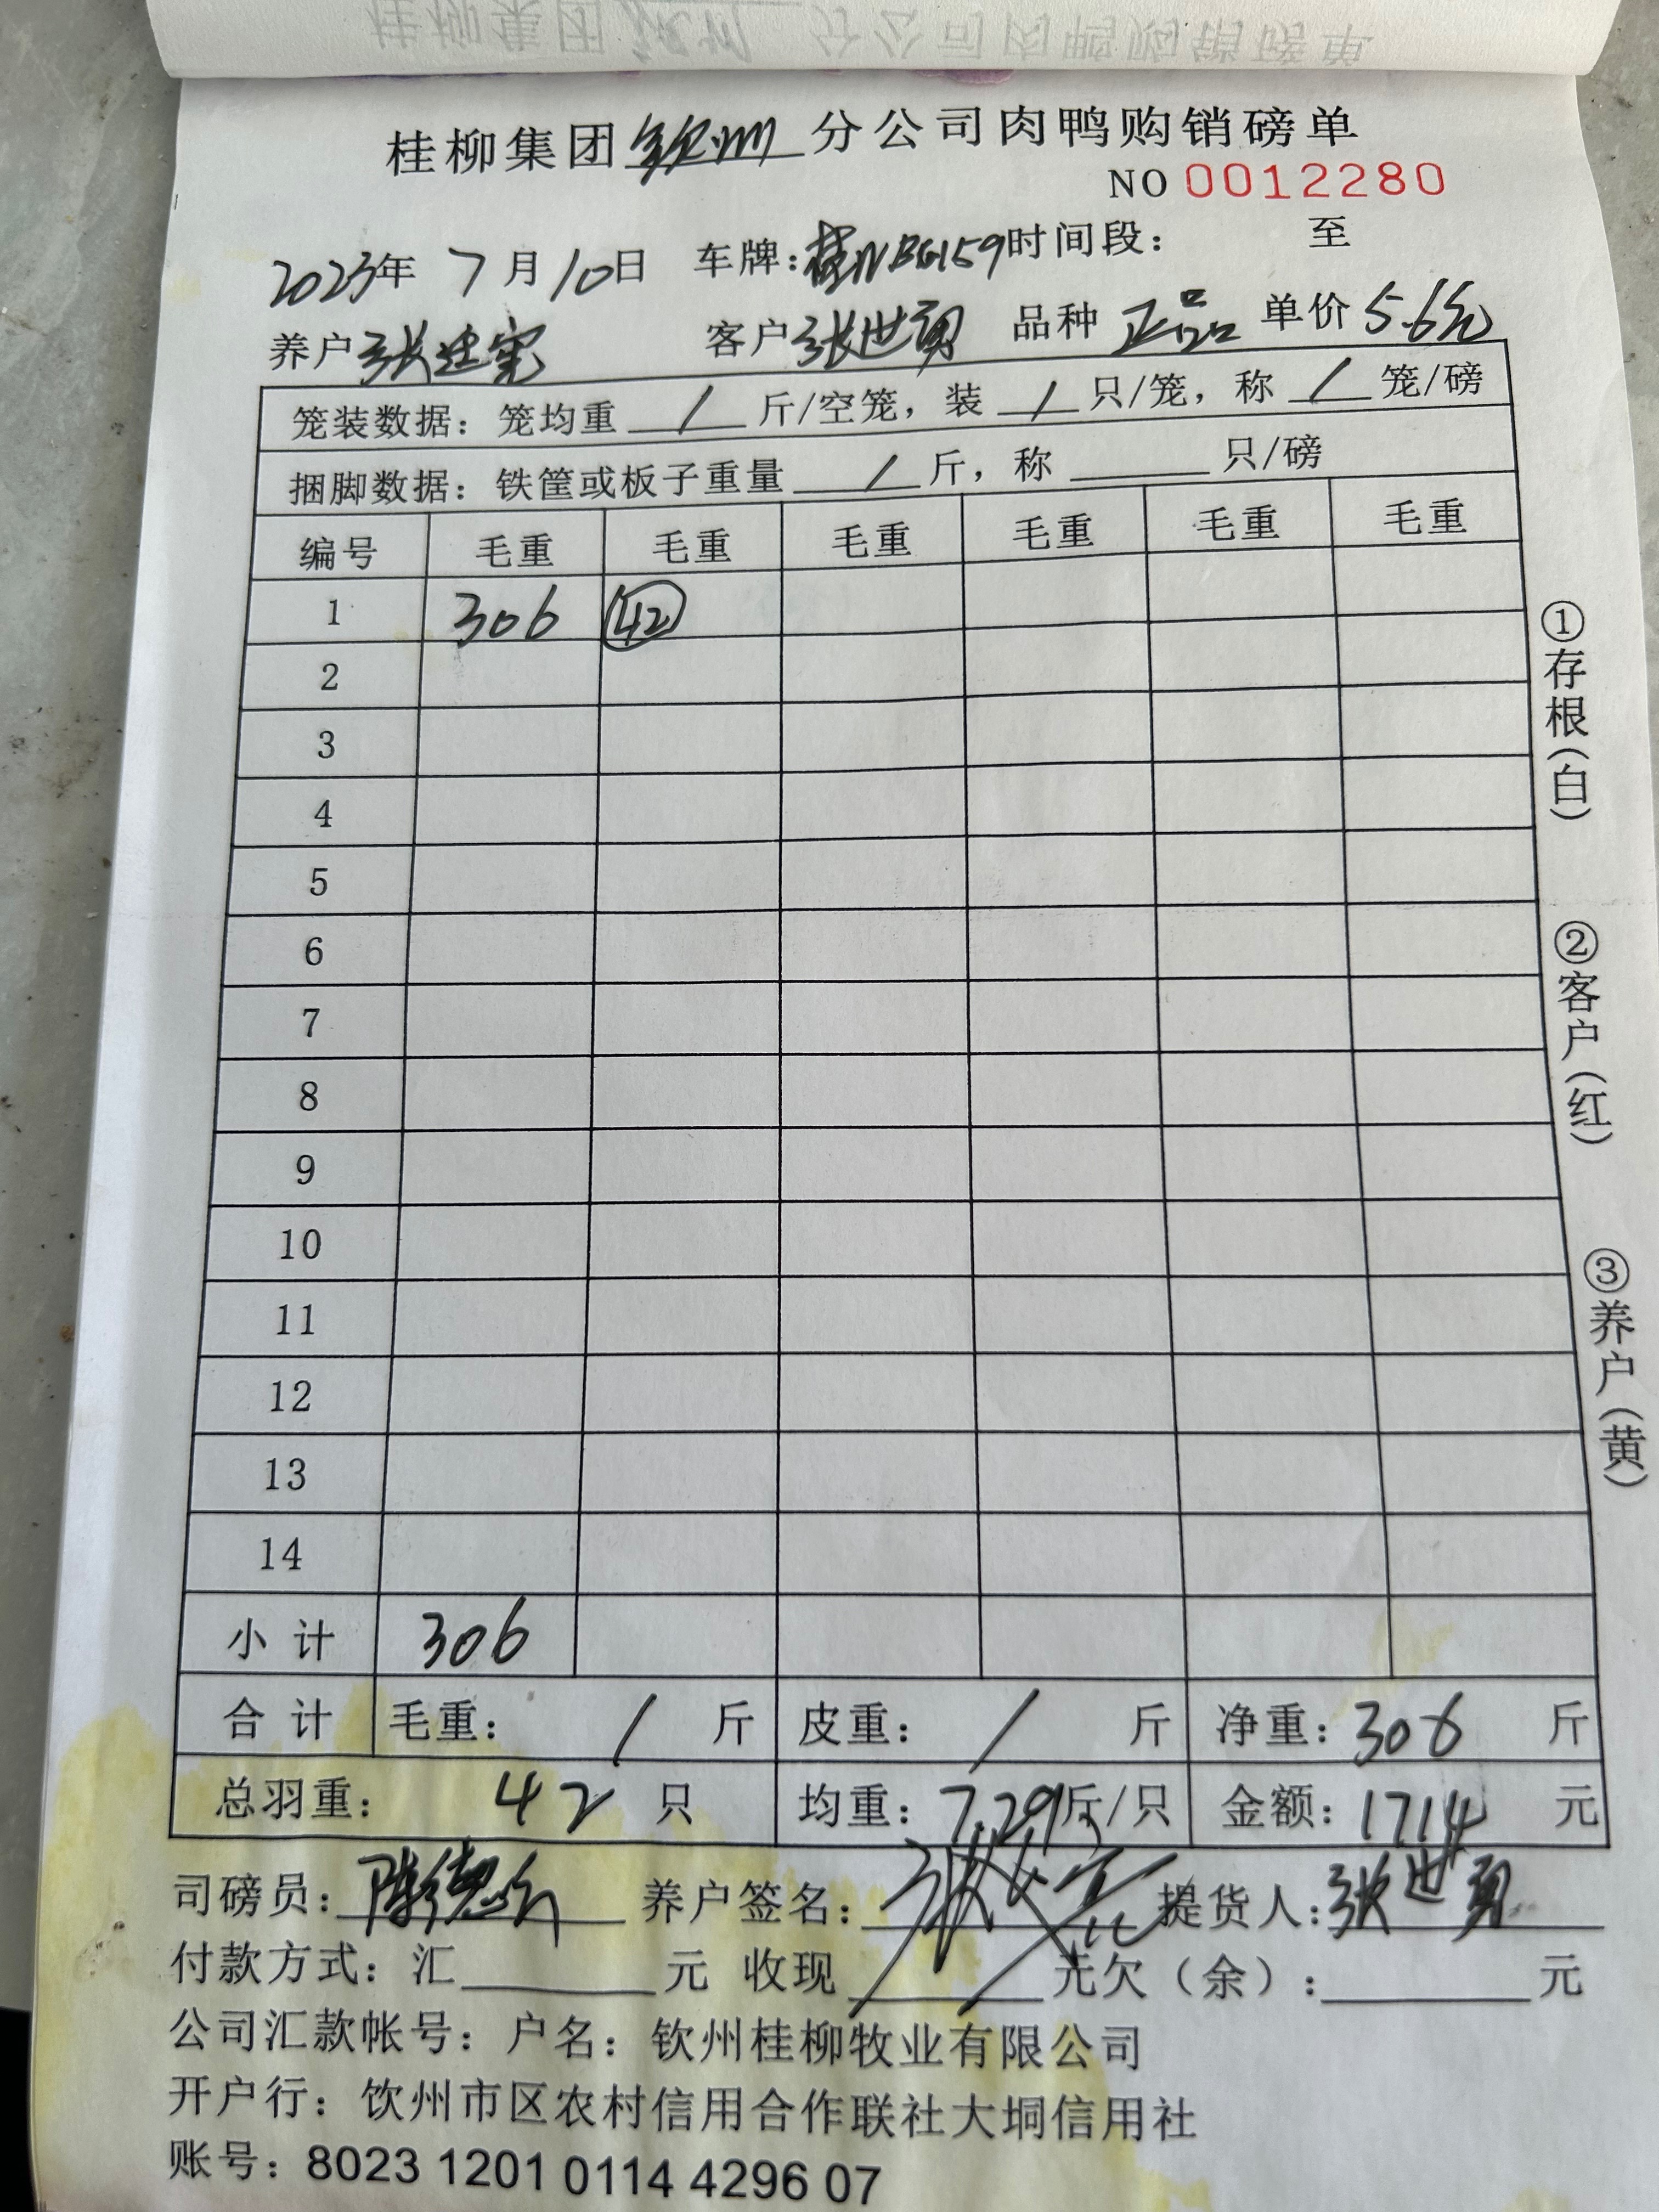 桂柳集团钦州分公司肉鸭购销磅单
NO 0012280
2023年 7月10日 车牌:桂NBG159时间段： 至
养户张建宪 客户张世勇 品种 正品 单价 5.6元
笼装数据：笼均重 / 斤/空笼，装 / 只/笼，称 / 笼/磅
捆脚数据：铁筐或板子重量 / 斤，称 只/磅
编号 毛重 毛重 毛重 毛重 毛重 毛重
1 306 42
2
3
4
5
6
7
8
9
10
11
12
13
14
小计 306
合计 毛重： / 斤 皮重： / 斤 净重：306 斤
总羽重： 42 只 均重：7.29斤/只 金额：1714 元
司磅员：陈德 养户签名： 提货人：张世勇
付款方式：汇 元 收现 元欠（余）： 元
公司汇款帐号：户名：钦州桂柳牧业有限公司
开户行：饮州市区农村信用合作联社大垌信用社
账号：8023 1201 0114 4296 07
①存根（白）
②客户（红）
③养户（黄）